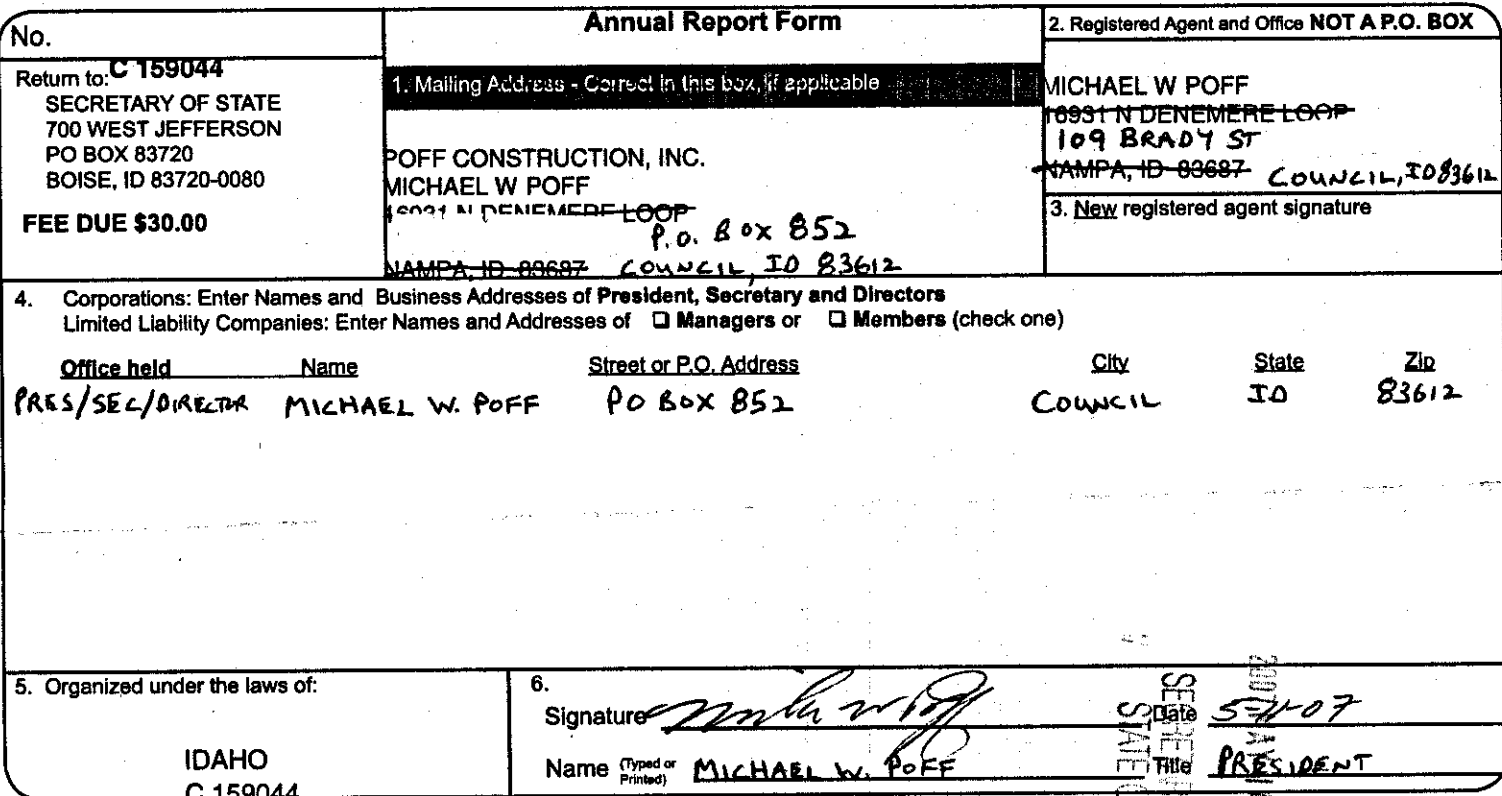 No.
Annual Report Form
2. Registered Agent and Office NOT A P.O. BOX
Return to: C 159044
SECRETARY OF STATE
700 WEST JEFFERSON
PO BOX 83720
BOISE, ID 83720-0080
FEE DUE $30.00
1. Mailing Address - Correct in this box, if applicable
POFF CONSTRUCTION, INC.
MICHAEL W POFF
N DENEMERE LOOP
P.O. BOX 852
NAMPA, ID 83687 COUNCIL, ID 83612
MICHAEL W POFF
16931 N DENEMERE LOOP
109 BRADY ST
NAMPA, ID 83687 COUNCIL, ID 83612
3. New registered agent signature
4. Corporations: Enter Names and Business Addresses of President, Secretary and Directors
Limited Liability Companies: Enter Names and Addresses of ❑ Managers or ❑ Members (check one)
Office held Name Street or P.O. Address City State Zip
PRES/SEC/DIRECTOR MICHAEL W. POFF PO BOX 852 COUNCIL ID 83612
5. Organized under the laws of:
IDAHO
C 159044
6.
Signature Date
Name (Typed or Printed) MICHAEL W. POFF Title PRESIDENT